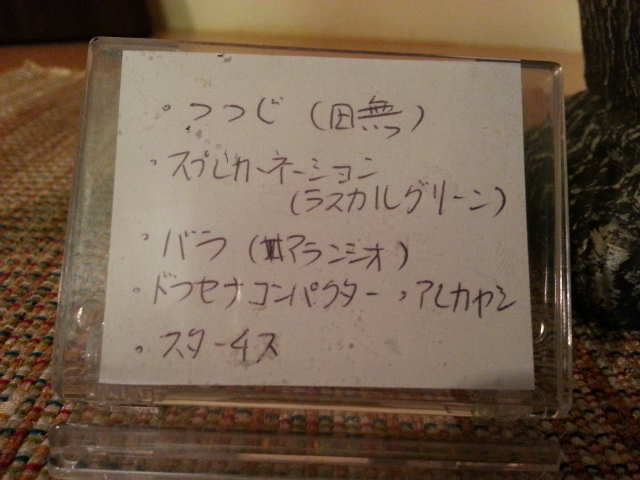 ・つつじ(田無)
・スプレカーネーション
(ラスカルグリーン)
・バラ(アランシオ)
・ドラセナコンパクター、アレカヤシ
・スターチス